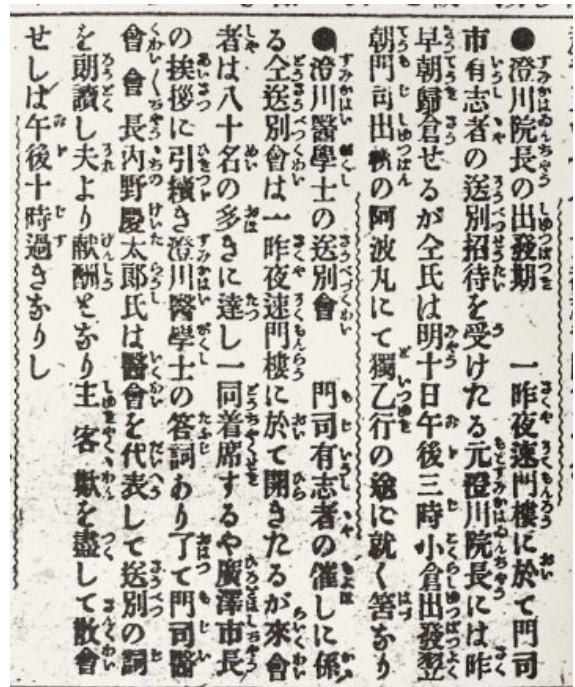 ●澄川院長の出發期　一昨夜速門樓に於て門司
市有志者の送別招待を受けたる元澄川院長には昨
早朝歸倉せるが仝氏は明十日午後三時小倉出發翌
朝門司出帆の阿波丸にて獨乙行の途に就く筈なり
●澄川醫學士の送別會　門司有志者の催しに係
る仝送別會は一昨夜速門樓に於て開きたるが來會
者は八十名の多きに達し一同着席するや廣澤市長
の挨拶に引續き澄川醫學士の答詞あり了て門司醫
會會長内野慶太郎氏は醫會を代表して送別の詞
を朗讀し夫より献酬となり主客歓を盡して散會
せしは午後十時過きなりし